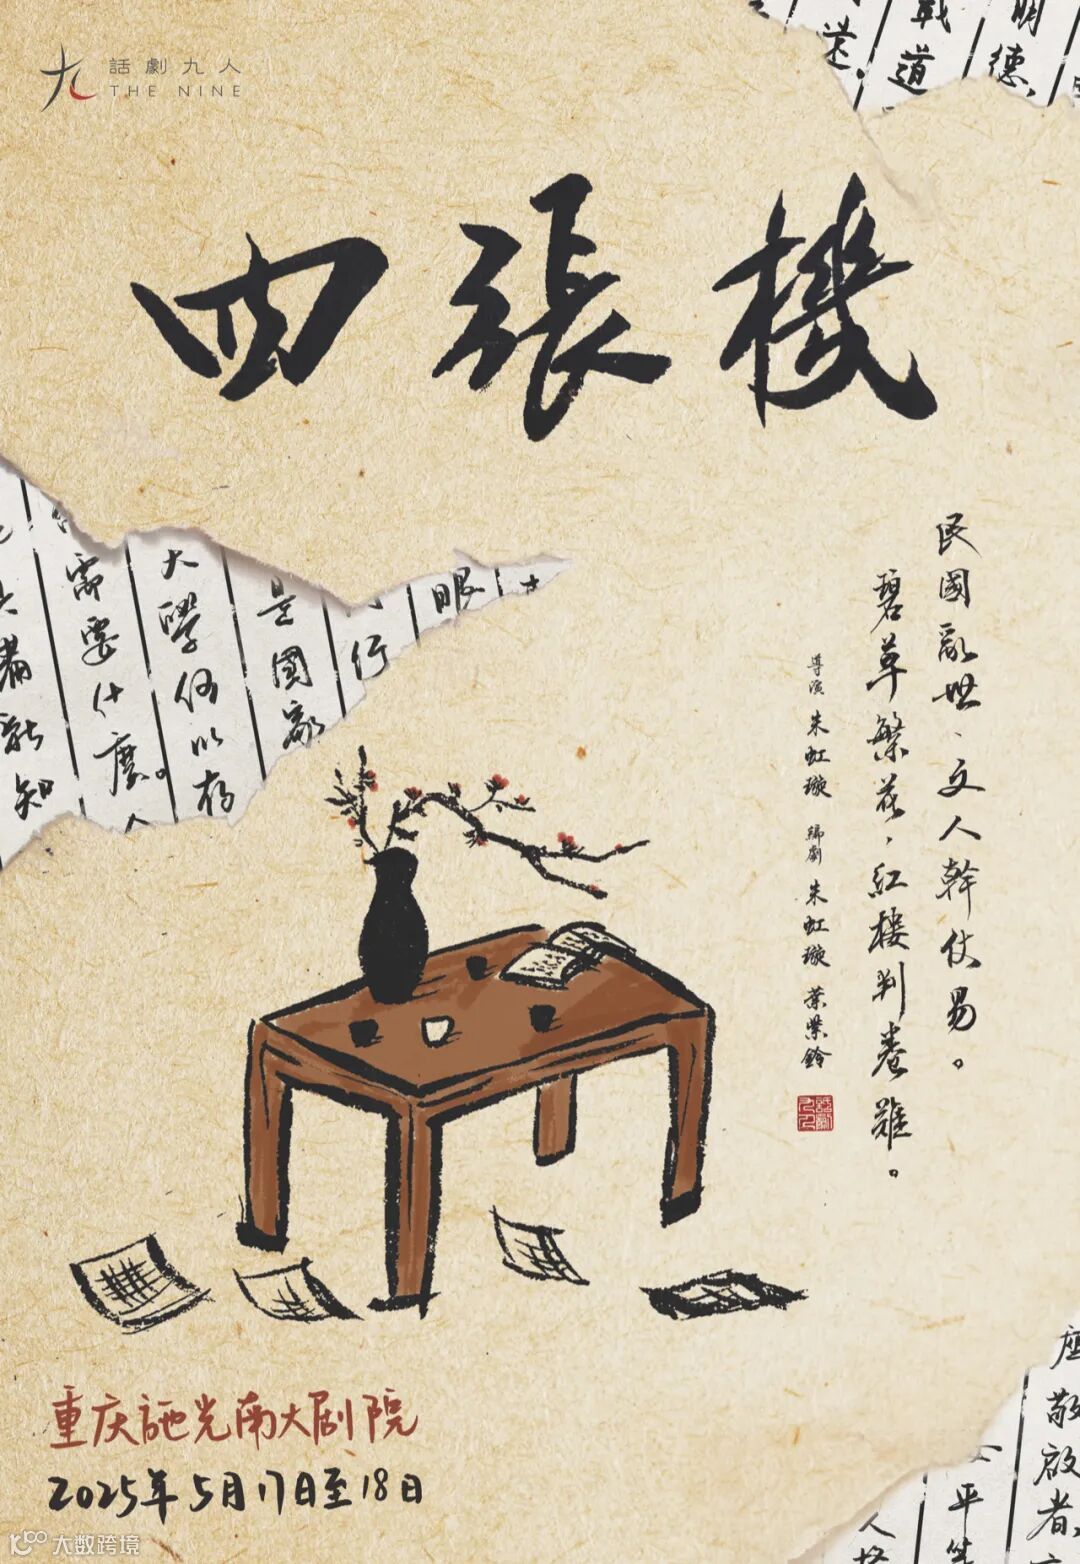 話劇九人
THE NINE
四張機
民國亂世、文人幹仗易。
碧草繁花，紅樓判卷難。
導演 朱虹璇 編劇 朱虹璇 葉紫鈴
話劇九人
道
明德
需要什麼。人
大學何以存
是國家
行
眼
新知
重庆施光南大剧院
2025年5月17日至18日
座
敬啟者
平
人格
大数跨境